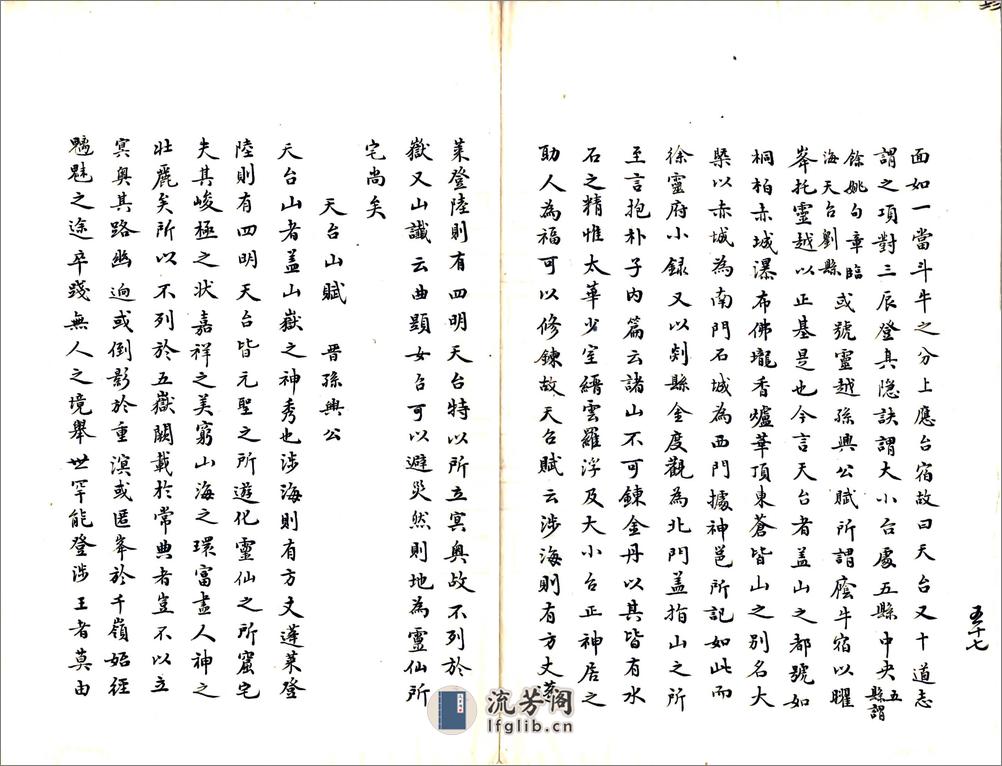 五十七
面如一當斗牛之分上應台宿故曰天台又十道志
謂之項對三辰登真隱訣謂大小台處五縣中央五縣謂
餘姚句章臨海天台剡縣或號靈越孫興公賦所謂廕牛宿以曜
峯托靈越以正基是也今言天台者蓋山之都號如
桐柏赤城瀑布佛壠香爐華頂東蒼皆山之別名大
槩以赤城為南門石城為西門據神邕所記如此而
徐靈府小録又以剡縣金庭觀為北門蓋指山之所
至言抱朴子內篇云諸山不可鍊金丹以其皆有水
石之精惟太華少室縉雲羅浮及大小台正神居之
助人為福可以修鍊故天台賦云涉海則有方丈蓬
萊登陸則有四明天台特以所立冥奥故不列於五
嶽又山讖云曲顕女台可以避災然則地為靈仙所
宅尚矣
天台山賦 晋孫興公
天台山者盖山嶽之神秀也涉海則有方丈蓬萊登
陸則有四明天台皆元聖之所遊化靈仙之所窟宅
夫其峻極之状嘉祥之美窮山海之環富盡人神之
壯麗矣所以不列於五嶽闕載於常典者豈不以立
冥奥其路幽迥或倒影於重溟或匿峯於千嶺始經
魑魅之途卒踐無人之境舉世罕能登渉王者莫由
流芳阁
lfglib.cn